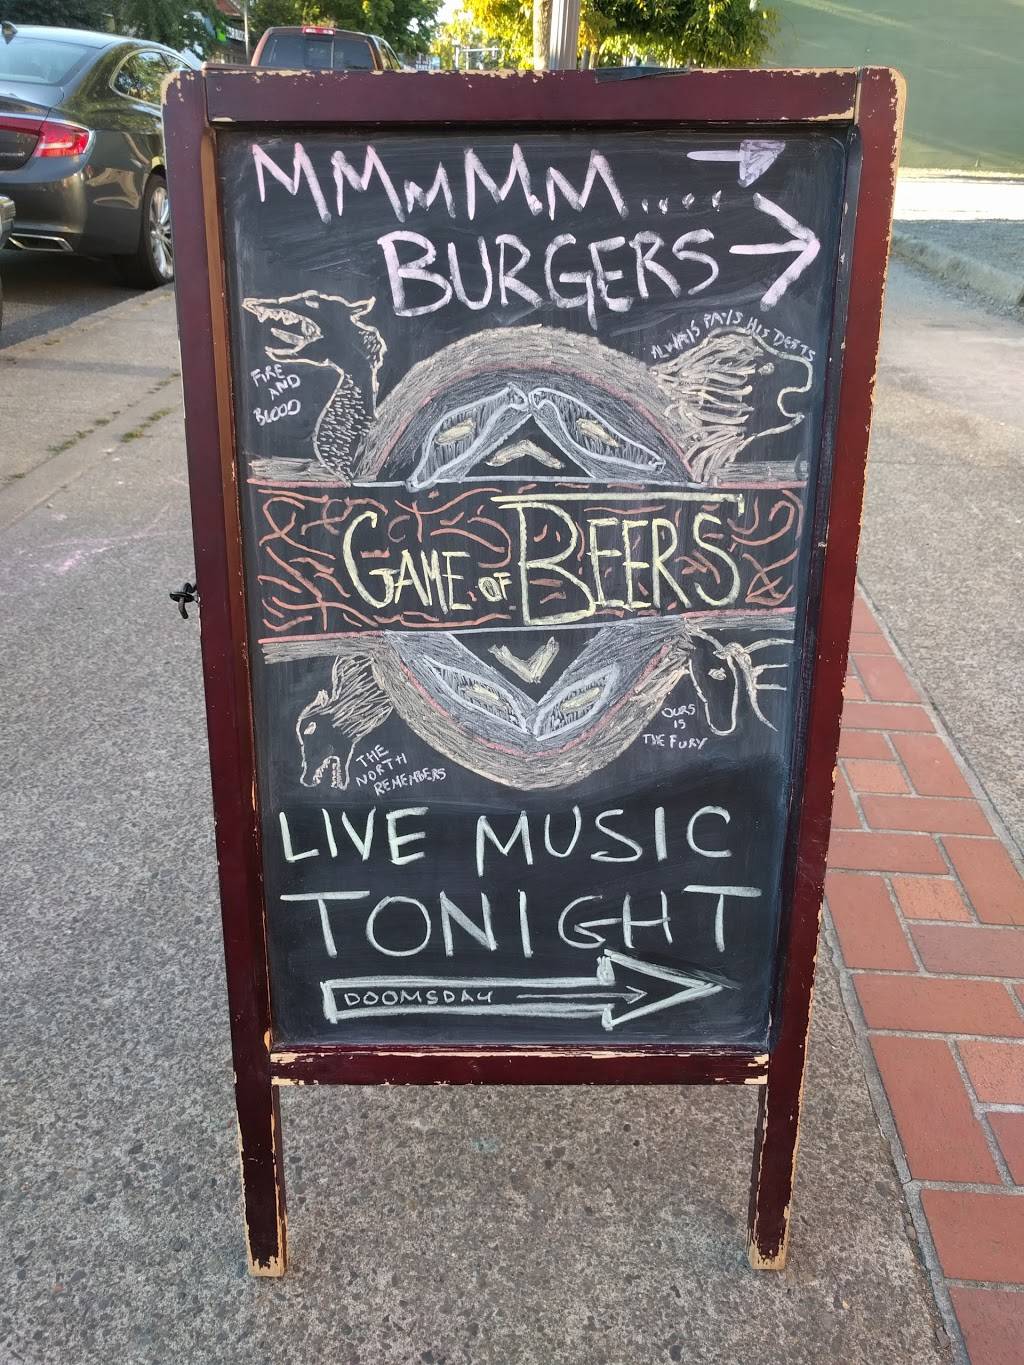 MMMMM.....
BURGERS
FIRE
AND
BLOOD
ALWAYS PAYS HIS DEBTS
GAME OF BEERS
THE
NORTH
REMEMBERS
OURS
IS
THE FURY
LIVE MUSIC
TONIGHT
DOOMSDAY